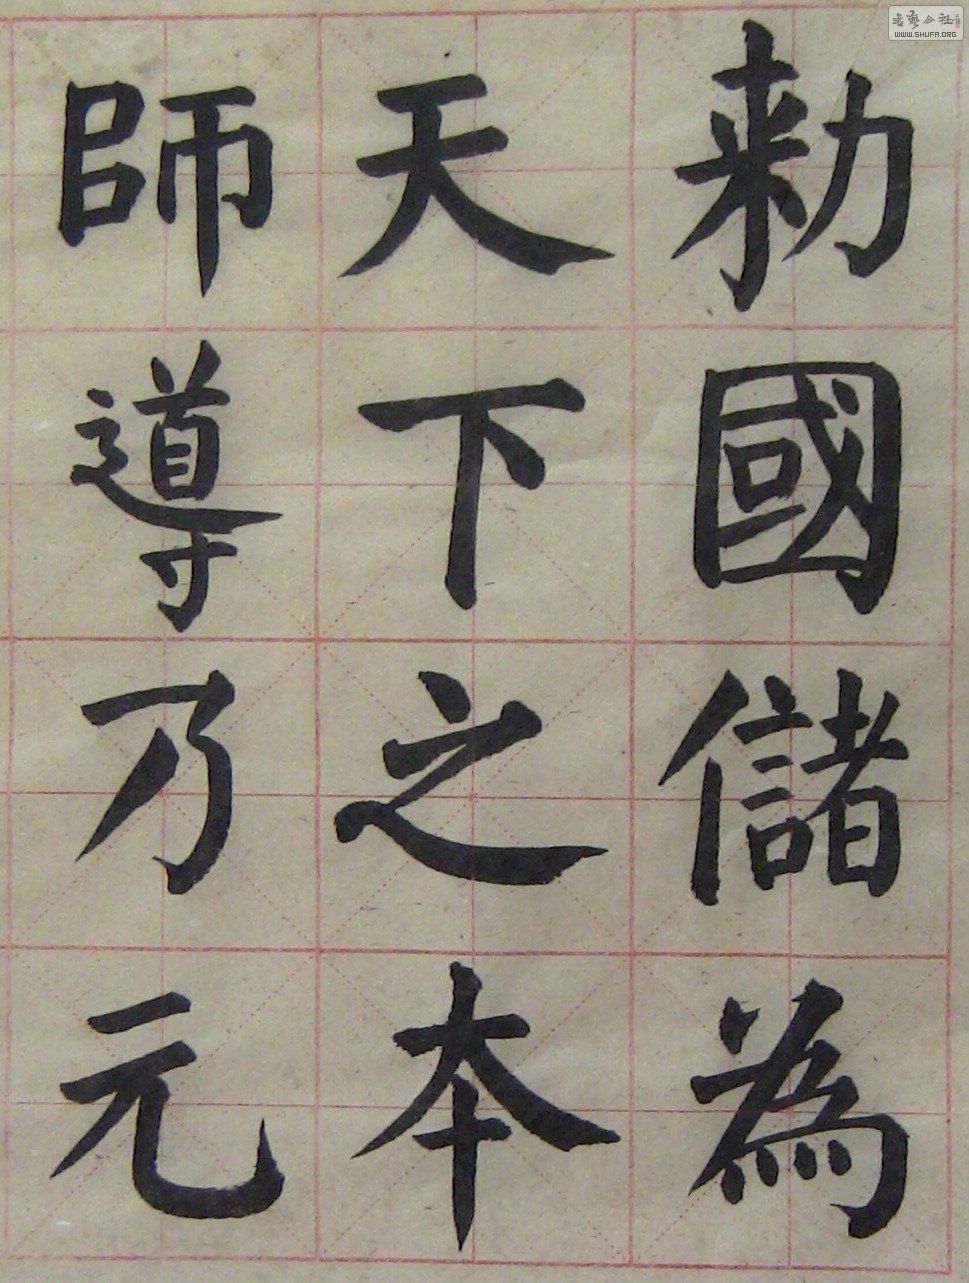 勑國儲為
天下之本
師導乃元
書藝公社
WWW.SHUFA.ORG